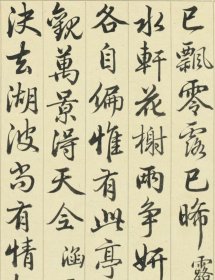 已飄零露已晞 露
水軒花榭兩争妍
各自偏惟有此亭
觀萬景得天全 涵
決去湖波尚有情